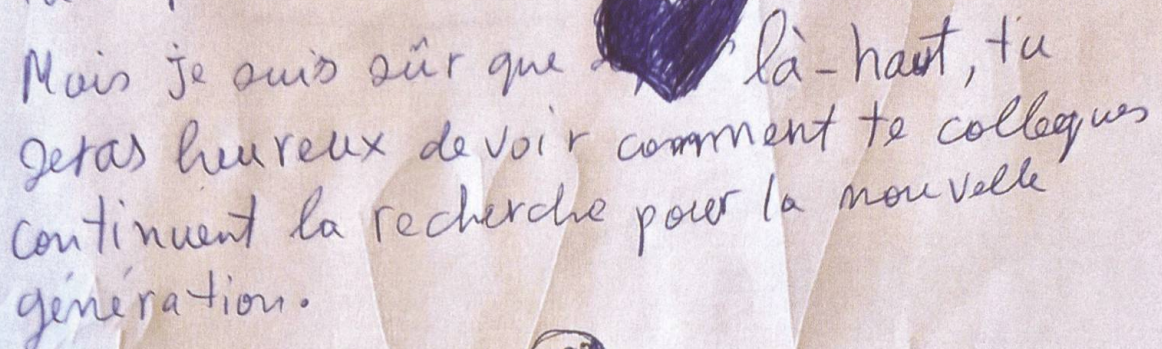 Mais je suis sûr que là-haut, tu
seras heureux de voir comment te collegues
continuent la recherche pour la nouvelle
génération.